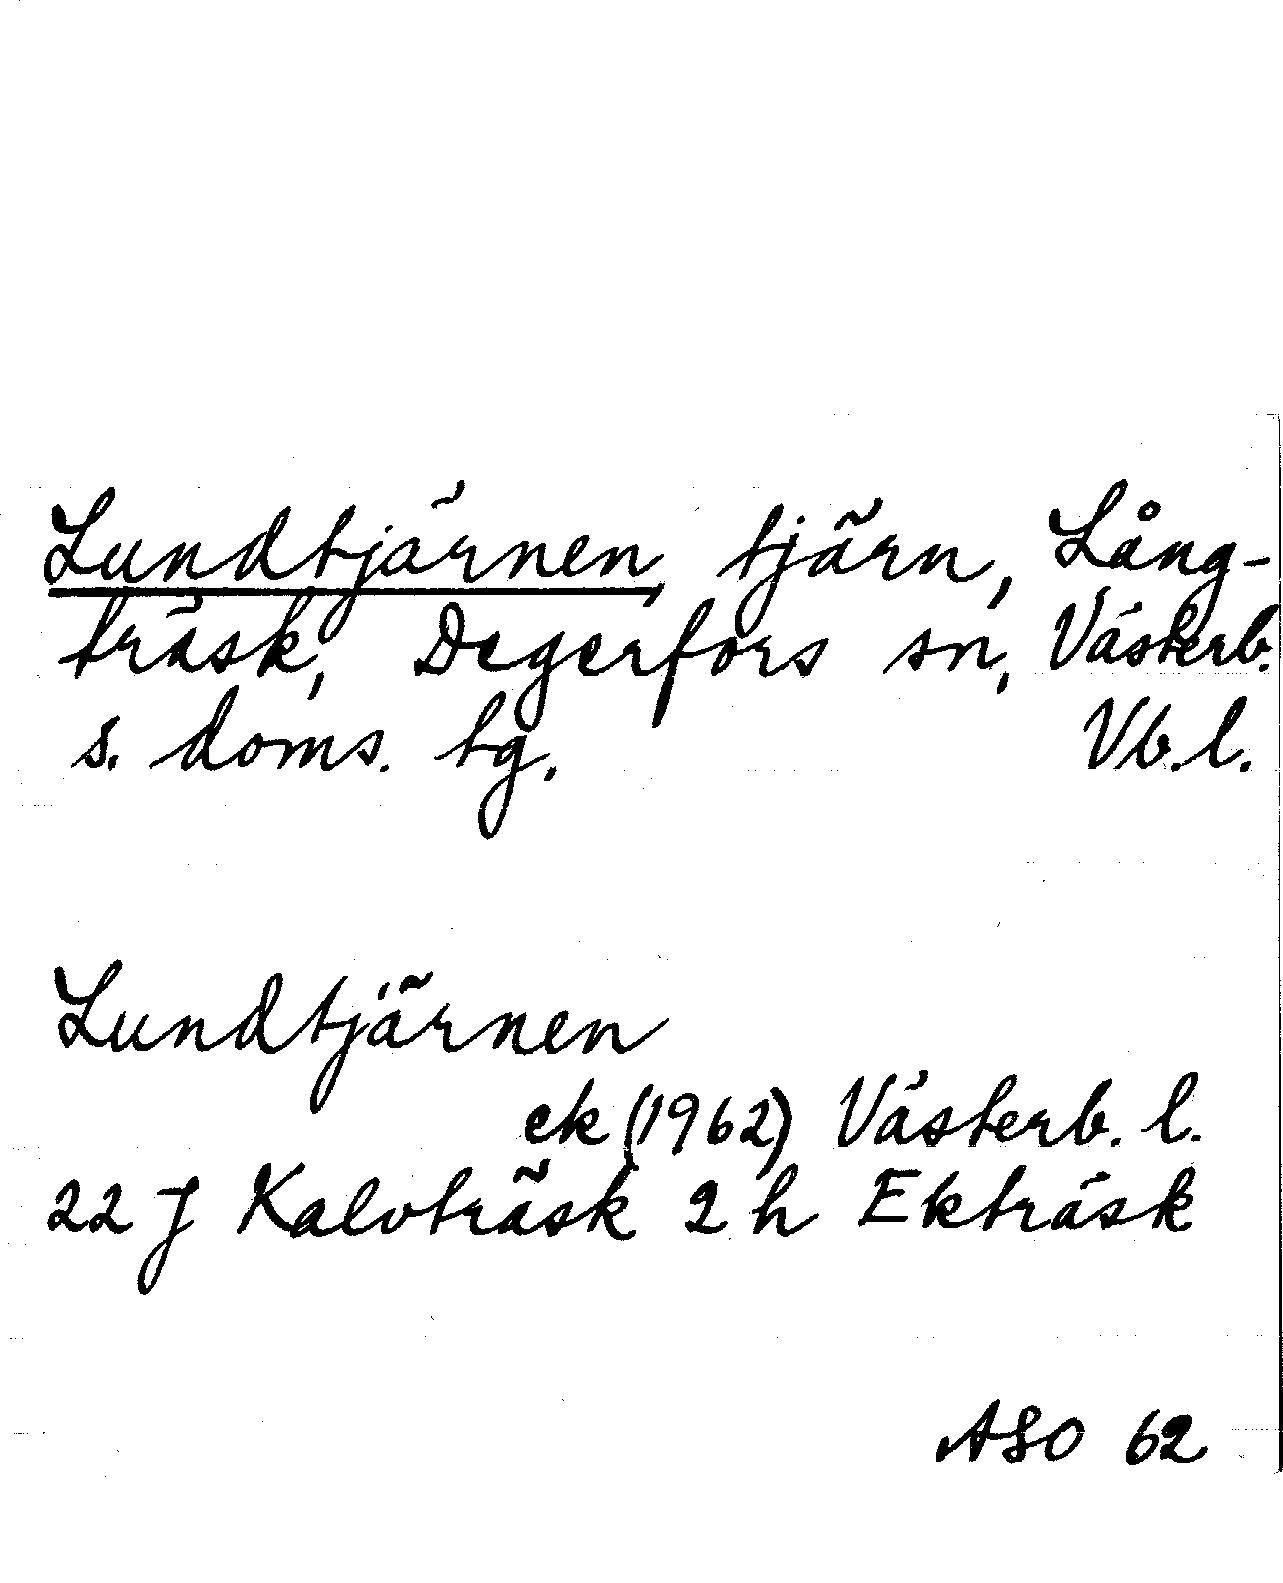 Lundtjärnen, tjärn, Lång-
träsk, Degerfors sn, Västerb.
s. doms. tg. Vb.l.
Lundtjärnen
ek (1962) Västerb. l.
22 J Kalvträsk 2 h Ekträsk
ASO 62